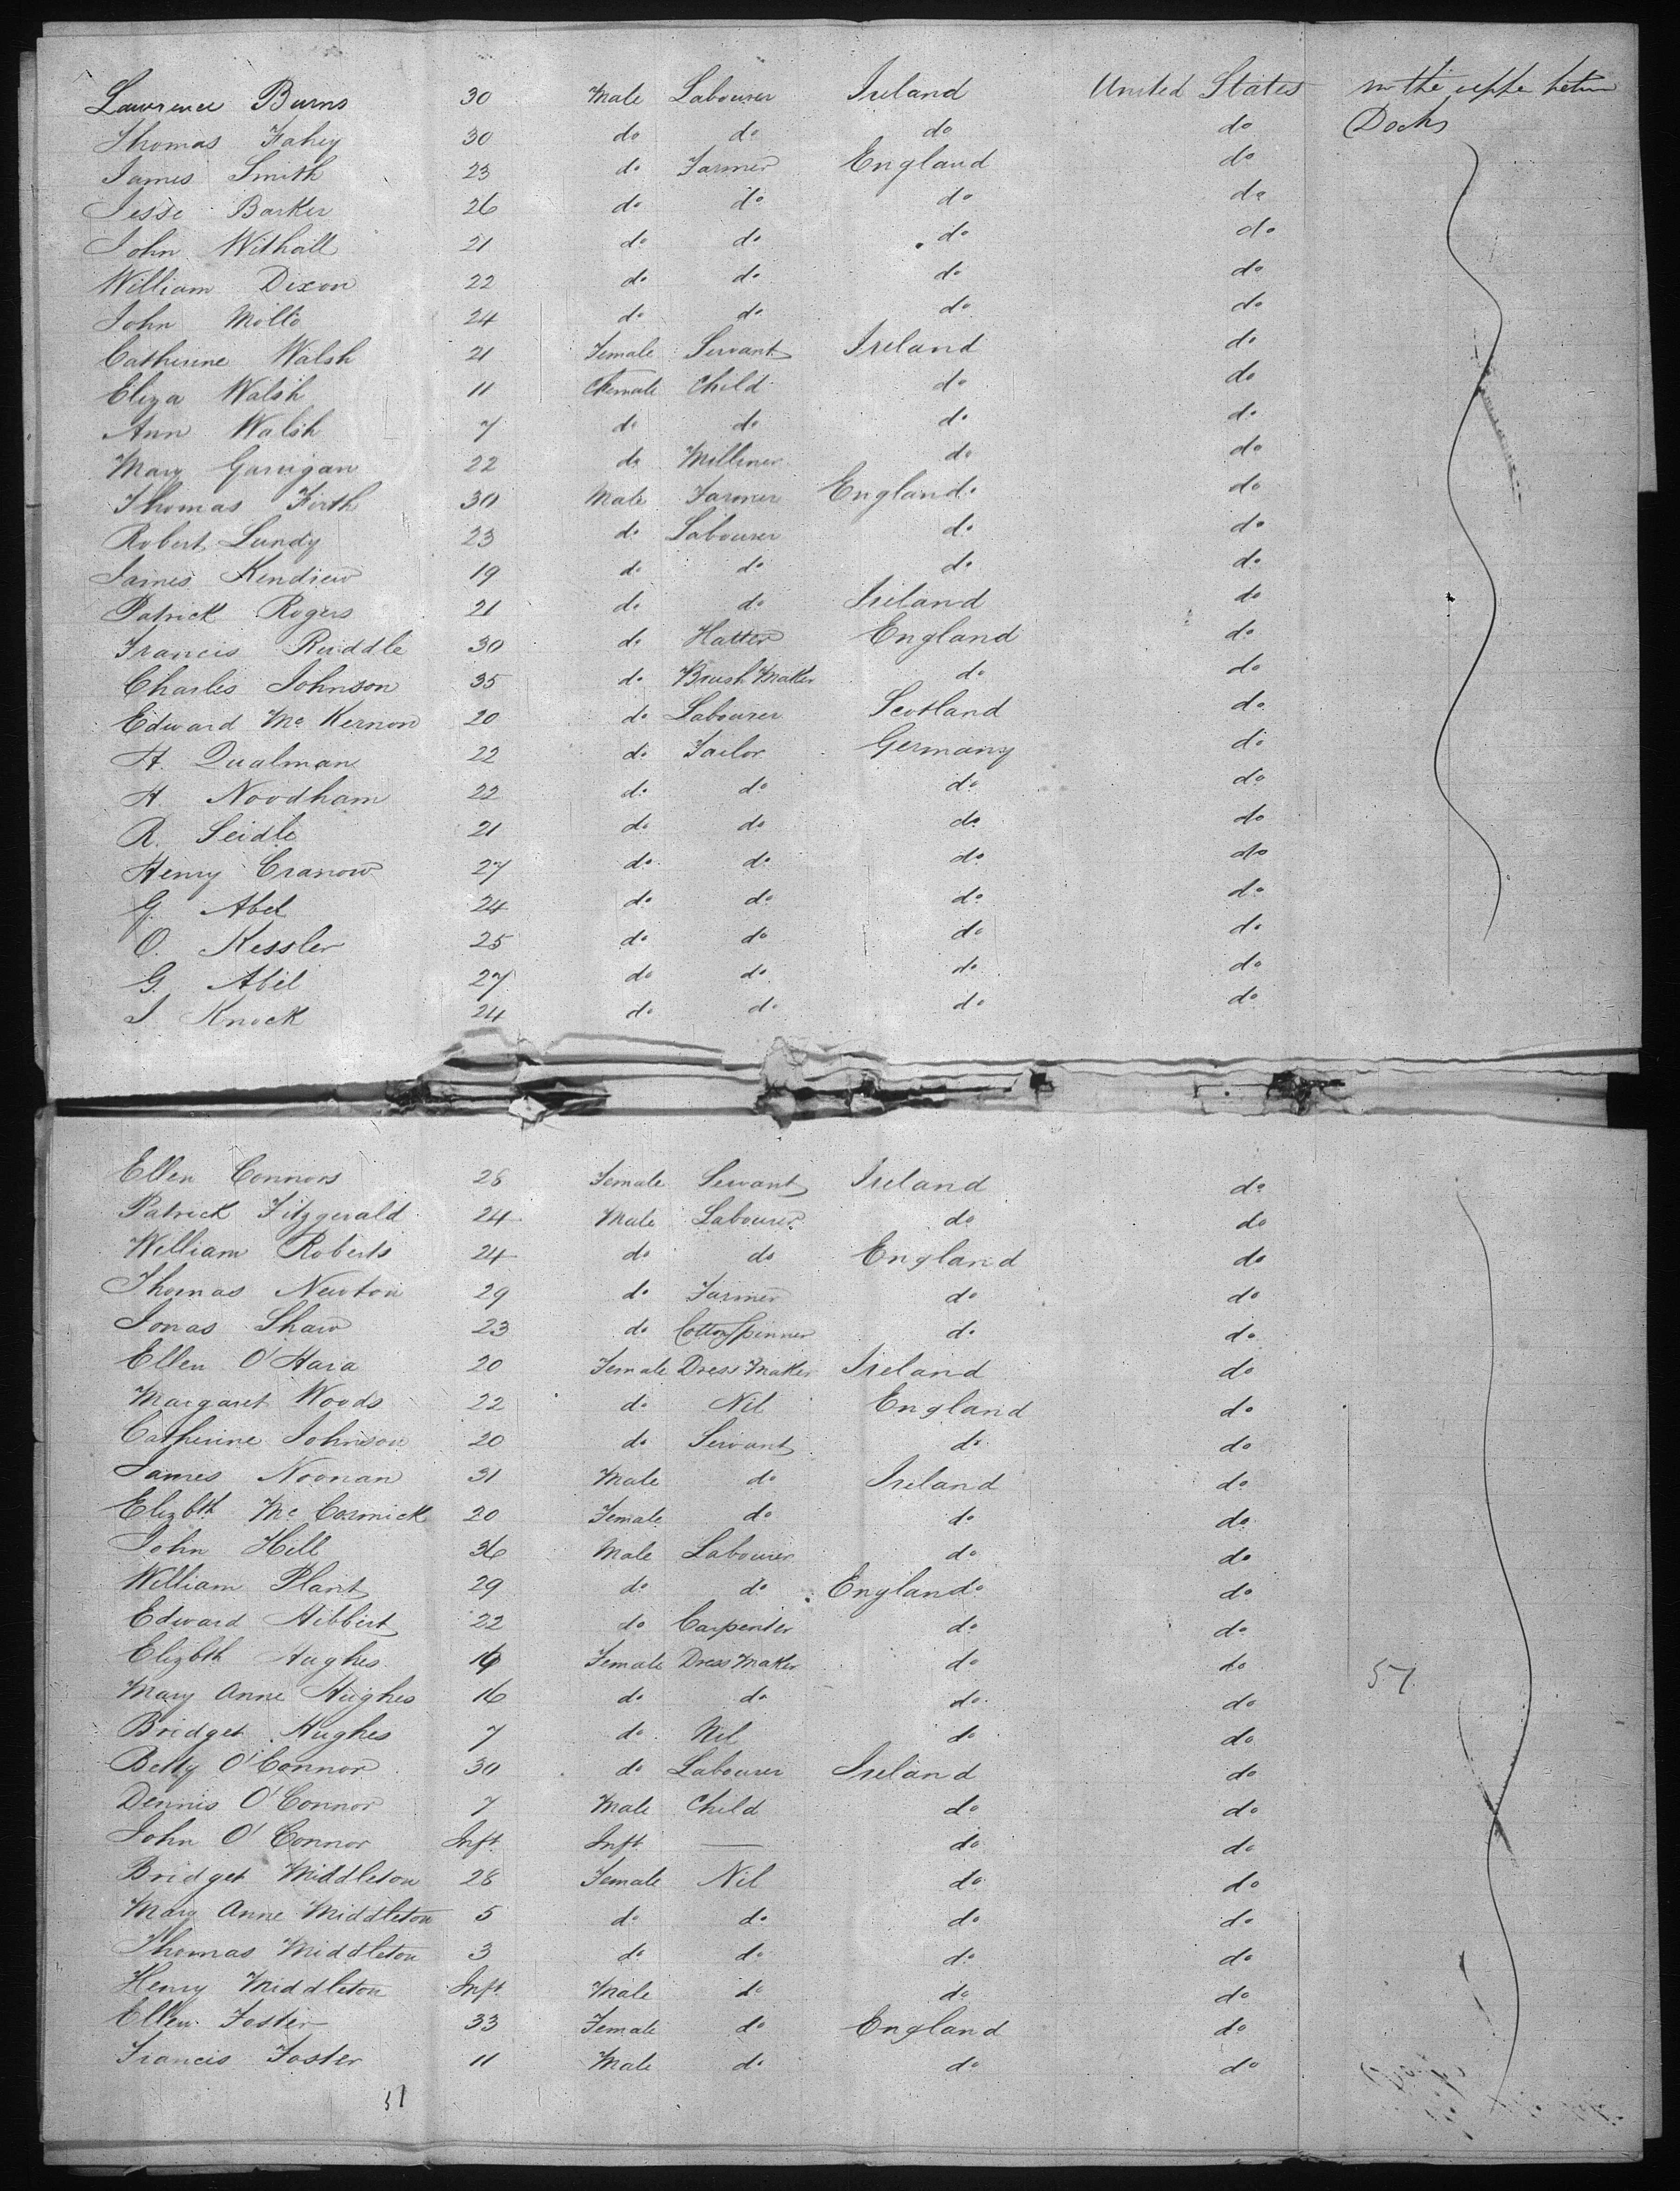 Lawrence Burns 30 Male Labourer Ireland United States in the upper between
Thomas Fahey 30 do do do do Decks
James Smith 23 do Farmer England do
Jesse Barker 26 do do do do
John Withall 21 do do do do
William Dixon 22 do do do do
John 24 do do do do
Catherine Walsh 21 Female Servant Ireland do
Eliza Walsh 11 Female Child do do
Ann Walsh 7 do do do do
Mary Garrigan 22 do Milliner do do
Thomas Firth 30 Male Farmer England do
Robert Lundy 23 do Labourer do do
James Kendrew 19 do do do do
Patrick Rogers 21 do do Ireland do
Francis Ruddle 30 do Hatter England do
Charles Johnson 35 do Brush Maker do do
Edward Mc Kernon 20 do Labourer Scotland do
H. Qualman 22 do Tailor Germany do
H Noodham 22 do do do do
R. Seidle 21 do do do do
Henry Cranow 27 do do do do
G. Abel 24 do do do do
O. Kessler 25 do do do do
G. Abel 27 do do do do
J Knock 24 do do do do
Ellen Connors 28 Female Servant Ireland do
Patrick Fitzgerald 24 Male Labourer do do
William Roberts 24 do do England do
Thomas Newton 29 do Farmer do do
Jonas Shaw 23 do Cotton Spinner do do
Ellen O'Hara 20 Female Dress Maker Ireland do
Margaret Woods 22 do Nil England do
Catherine Johnson 20 do Servant do do
James Noonan 31 Male do Ireland do
Elizbth Mc Cormick 20 Female do do do
John Hill 36 Male Labourer do do
William Plant 29 do do England do
Edward Hibbert 22 do Carpenter do do
Elizbth Hughes Female Dress Maker do do 57
Mary Anne Hughes 16 do do do do
Bridget Hughes 7 do Nil do do
Betty O'Connor 30 do Labourer Ireland do
Dennis O'Connor 7 Male Child do do
John O'Connor Inft. Inft. — do do
Bridget Middleton 28 Female Nil do do
Mary Anne Middleton 5 do do do do
Thomas Middleton 3 do do do do
Henry Middleton Inft. Male do do do
Ellen Foster 33 Female do England do
Francis Foster 11 Male do do do
51